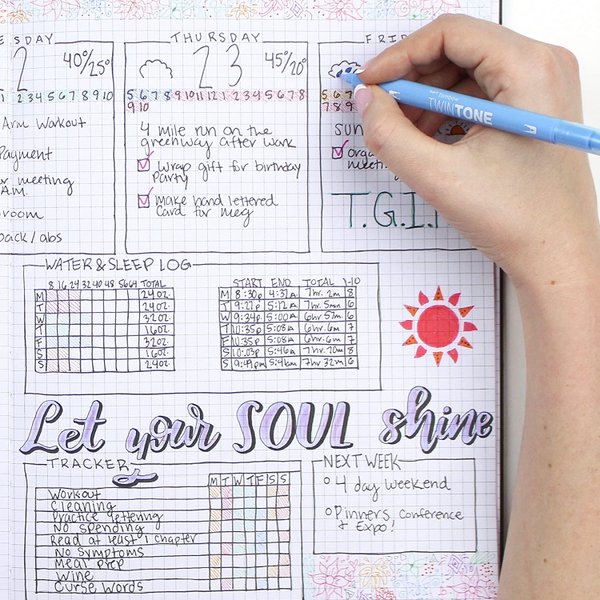 SDAY
THURSDAY
FRID
2
40°/25°
23
45°/20°
1 2 3 4 5 6 7 8 9 10
5 6 7 8 9 10 11 12 1 2 3 4 5 6 7 8
9 10
5 6 7
7 8 9
Arm Workout
Payment
meeting
A.M.
room
back/abs
4 mile run on the
greenway after work
wrap gift for birthday
party
Make hand lettered
Card for Meg
SUN
orga
meeti
T.G.I.F
TOMBOW TWINTONE
WATER & SLEEP LOG
8 16 24 32 40 48 56 64 TOTAL
M 24oz.
T 24oz.
W 32oz.
T 16oz.
F 32oz.
S 16oz.
S 24oz.
START END TOTAL 1-10
M 8:30p 4:32A 7hr. 2m 8
T 9:27p 5:12A 7hr. 6m 7
W 9:34p 5:00A 6hr 57m 6
T 10:35p 5:08A 6hr. 6m 7
F 10:35p 5:08A 6hr. 6m 7
S 10:03p 5:46A 7hr. 20m 8
S 9:49pm 5:41am 7hr 32m 6
Let your SOUL shine
TRACKER
M T W T F S S
Workout
Cleaning
Practice lettering
No spending
Read at least 1 chapter
No Symptoms
Meal Prep
Wine
Curse Words
NEXT WEEK
4 day weekend
Pinners Conference
& Expo!